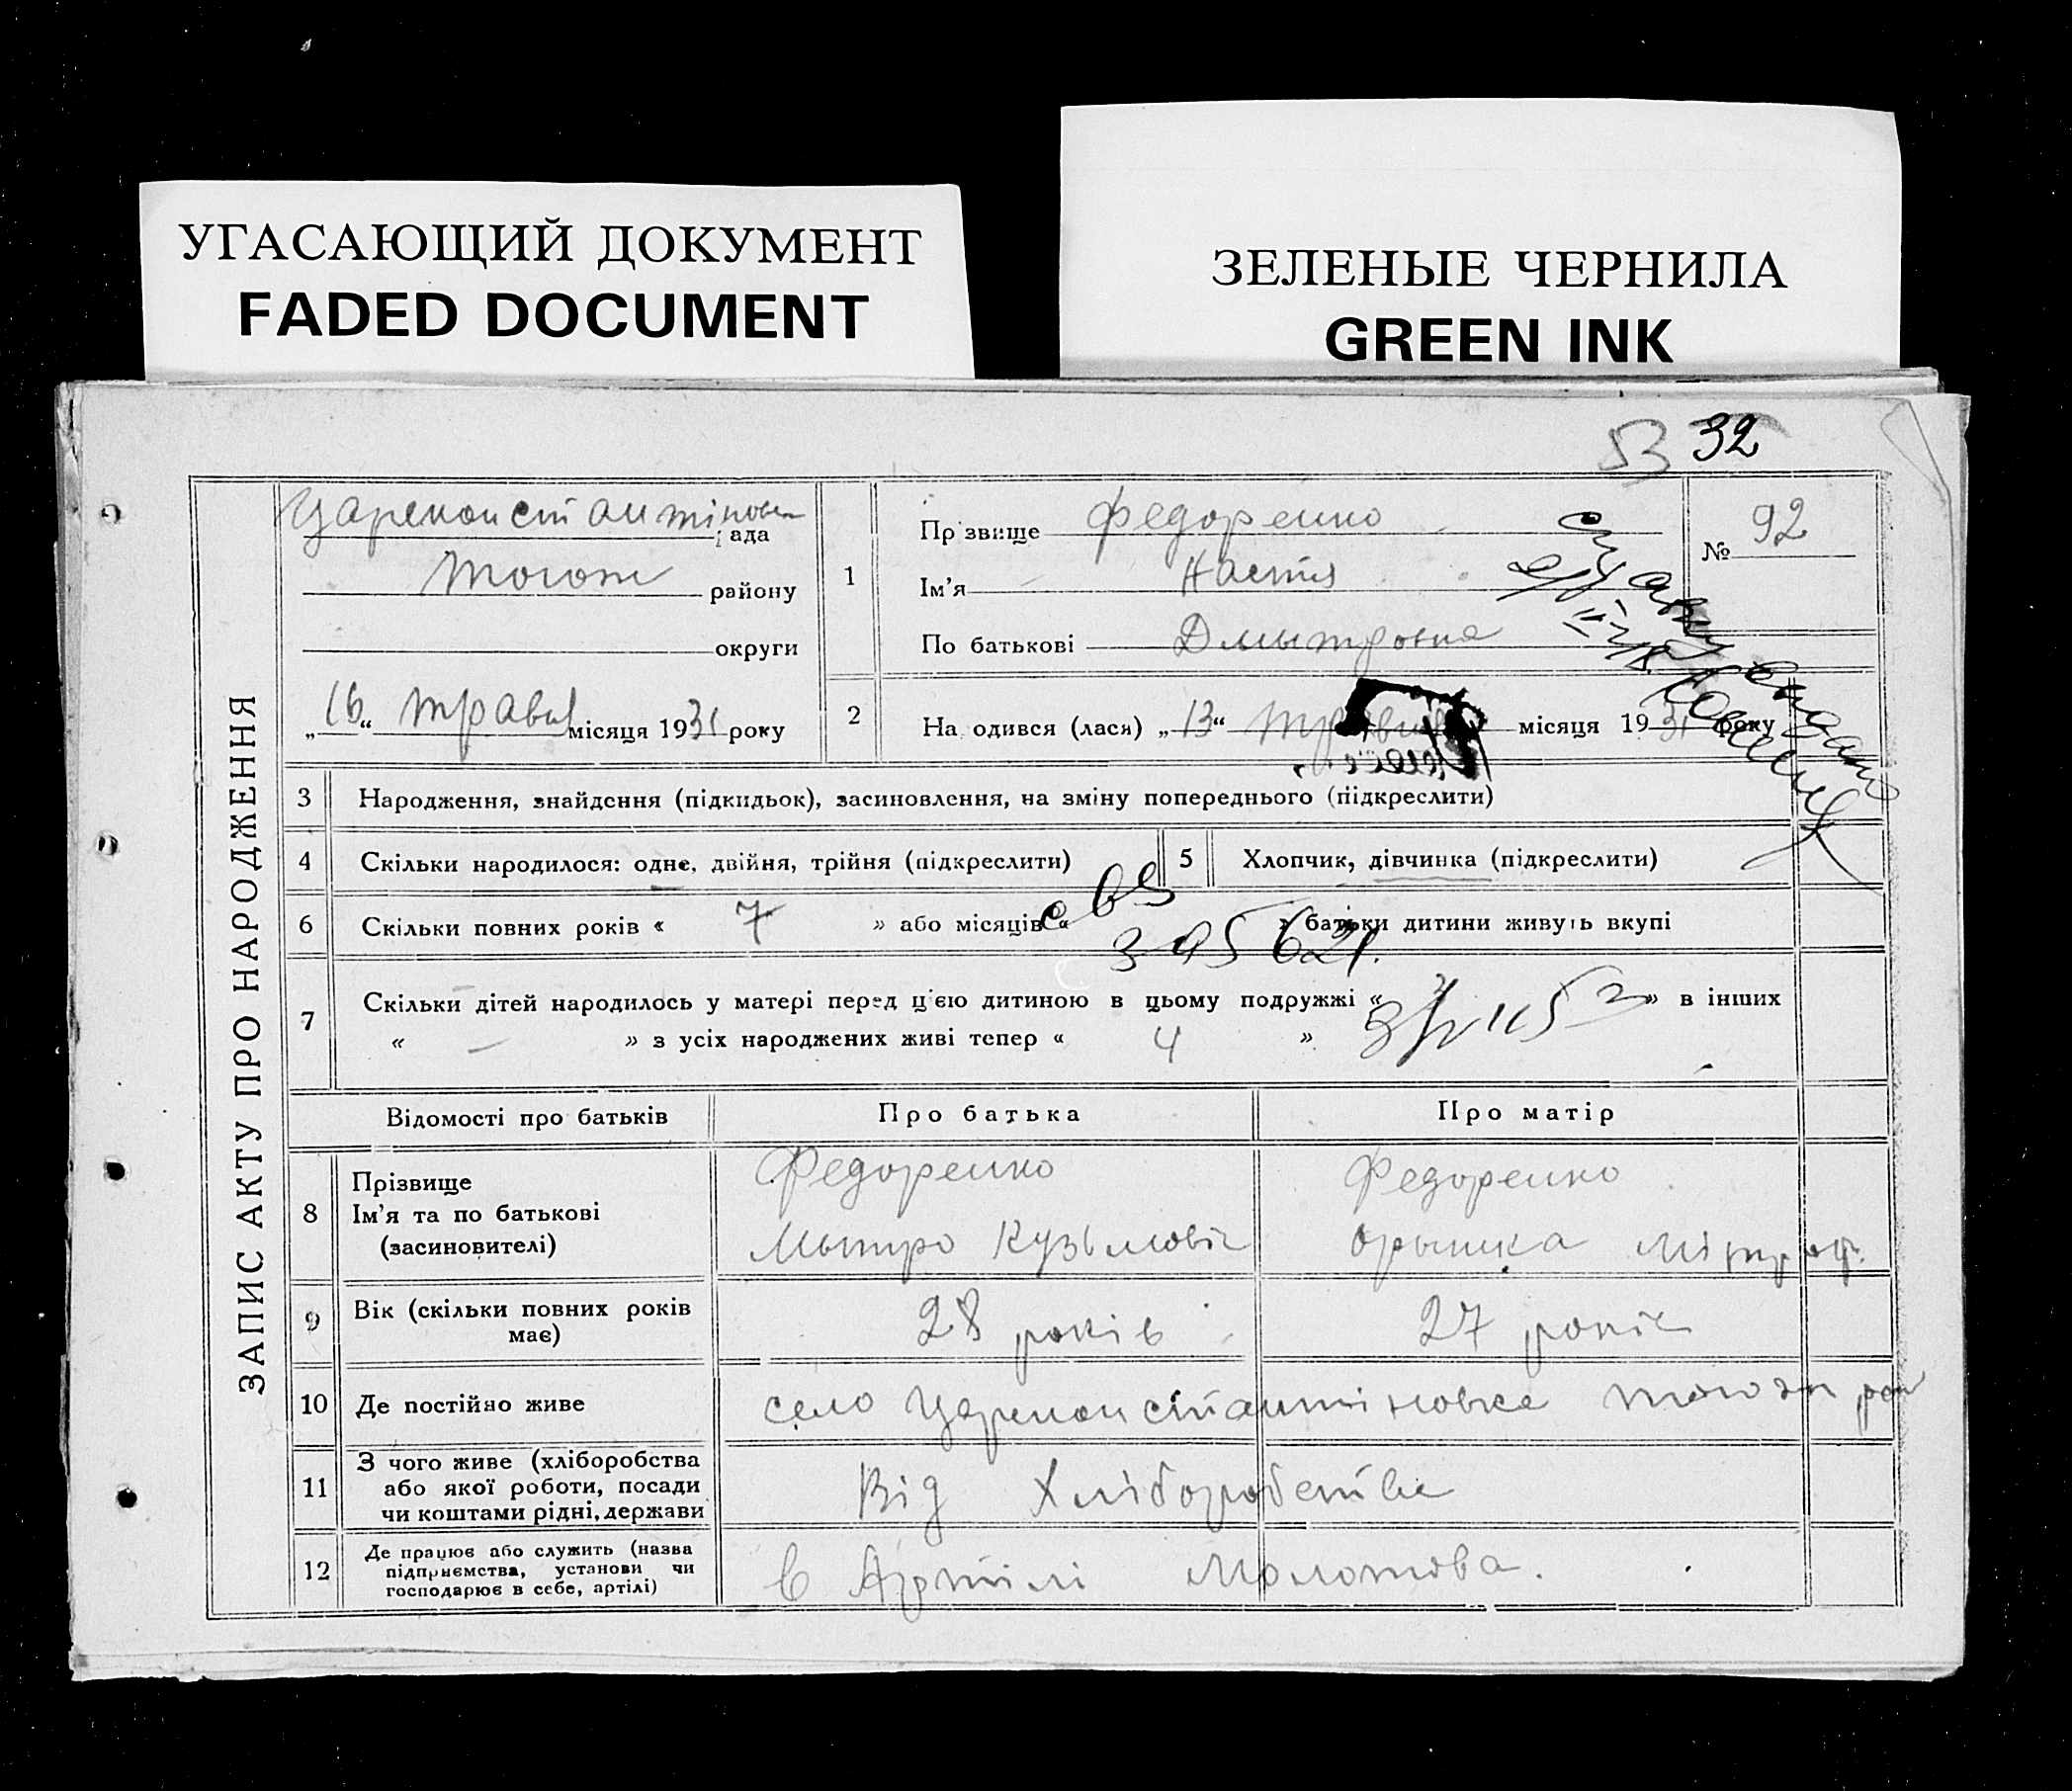 УГАСАЮЩИЙ ДОКУМЕНТ
FADED DOCUMENT
ЗЕЛЕНЫЕ ЧЕРНИЛА
GREEN INK
53 32
ЗАПИС АКТУ ПРО НАРОДЖЕННЯ
рада
району
округи
„16“ травня місяця 1931 року
1
Прізвище Федоренко
Ім’я Настя
По батькові Дмытровна
№ 92
2 Народився (лася) „13“ травня місяця 1931 року
3 Народження, знайдення (підкидьок), засиновлення, на зміну попереднього (підкреслити)
4 Скільки народилося: одне, двійня, трійня (підкреслити)
5 Хлопчик, дівчинка (підкреслити)
6 Скільки повних років « 7 » або місяців « » батьки дитини живуть вкупі
7 Скільки дітей народилось у матері перед цією дитиною в цьому подружжі « » в інших
« — » з усіх народжених живі тепер « 4 »
Відомості про батьків Про батька Про матір
8 Прізвище
Ім’я та по батькові
(засиновителі)
Федоренко
Мытро Кузьмовіч
Федоренко
Орышка Мітроф.
9 Вік (скільки повних років
має)
28 років
27 років
10 Де постійно живе
село Цареконстантіновка
11 З чого живе (хліборобства
або якої роботи, посади
чи коштами рідні, держави
Від Хліборобства
12 Де працює або служить (назва
підприємства, установи чи
господарює в себе, артілі)
в Артілі Молотова.